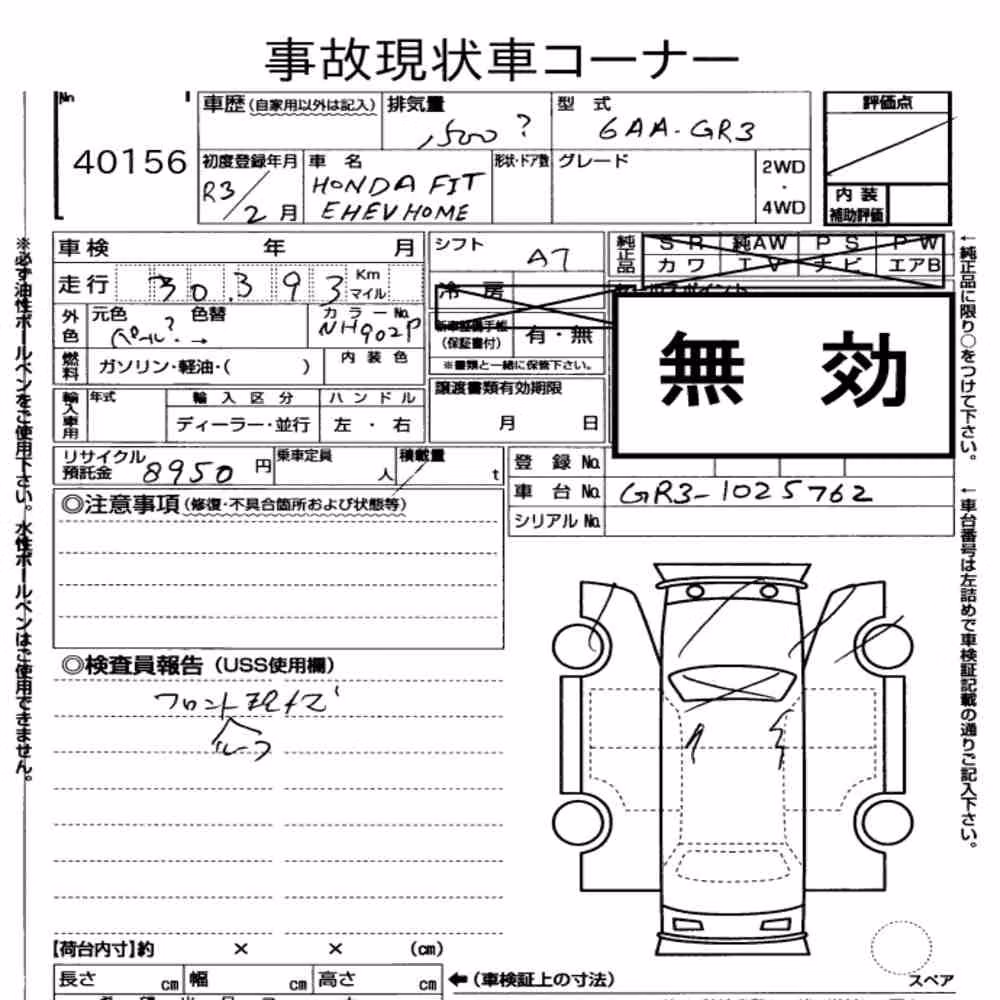 事故現状車コーナー
No.
40156
車歴(自家用以外は記入)
排気量
1500?
型式
6AA-GR3
評価点
初度登録年月
R3/2月
車名
HONDA FIT
EHEV HOME
形状・ドア数
グレード
2WD
・
4WD
内装
補助評価
車検 年 月
シフト
AT
純正品
SR 純AW PS PW
カワ TV ナビ エアB
走行
30,393
Km
マイル
冷房
セールスポイント
外色
元色 色替
パール? →
カラーNo.
NH902P
新車整備手帳
(保証書付)
有・無
※書類と一緒に保管下さい。
無効
燃料
ガソリン・軽油・( )
内装色
輸入車用
年式
輸入区分
ハンドル
ディーラー・並行
左・右
譲渡書類有効期限
月 日
リサイクル
預託金
8950円
乗車定員
人
積載量
t
登録No.
車台No.
GR3-1025762
シリアルNo.
◎注意事項(修復・不具合箇所および状態等)
◎検査員報告(USS使用欄)
フロント
ルーフ
【荷台内寸】約 × × (cm)
長さ cm 幅 cm 高さ cm
←(車検証上の寸法)
スペア
※必ず油性ボールペンをご使用下さい。水性ボールペンはご使用できません。
←純正品に限り○をつけて下さい。
←車台番号は左詰めで車検証記載の通りご記入下さい。